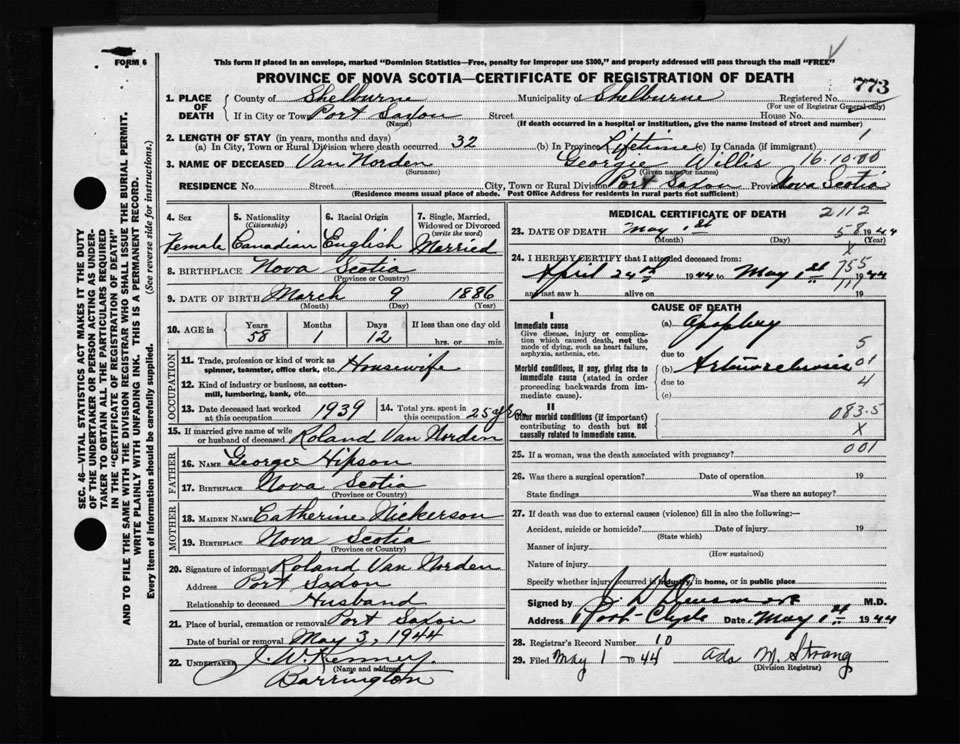 FORM 6
This form if placed in an envelope, marked "Dominion Statistics—Free, penalty for improper use $300," and properly addressed will pass through the mail "FREE"
PROVINCE OF NOVA SCOTIA—CERTIFICATE OF REGISTRATION OF DEATH
773
1. PLACE OF DEATH County of Shelburne Municipality of Shelburne Registered No.
(For use of Registrar General only)
If in City or Town Port Saxon Street House No.
(Name) (If death occurred in a hospital or institution, give the name instead of street and number)
2. LENGTH OF STAY (in years, months and days)
(a) In City, Town or Rural Division where death occurred 32 (b) In Province Lifetime (c) In Canada (if immigrant) 1
3. NAME OF DECEASED Van Norden Georgie Willis 16-10-00
(Surname) (Given name or names)
RESIDENCE No. Street City, Town or Rural Division Port Saxon Province Nova Scotia
(Residence means usual place of abode. Post Office Address for residents in rural parts not sufficient)
4. Sex 5. Nationality (Citizenship) 6. Racial Origin 7. Single, Married, Widowed or Divorced (write the word)
Female Canadian English Married
8. BIRTHPLACE Nova Scotia
(Province or Country)
9. DATE OF BIRTH March 9 1886
(Month) (Day) (Year)
10. AGE in Years Months Days If less than one day old
58 1 12 hrs. or min.
OCCUPATION
11. Trade, profession or kind of work as spinner, teamster, office clerk, etc. Housewife
12. Kind of industry or business, as cotton-mill, lumbering, bank, etc.
13. Date deceased last worked at this occupation 1939 14. Total yrs. spent in this occupation 25 yrs
15. If married give name of wife or husband of deceased Roland Van Norden
FATHER
16. NAME George Hipson
17. BIRTHPLACE Nova Scotia
(Province or Country)
MOTHER
18. MAIDEN NAME Catherine Nickerson
19. BIRTHPLACE Nova Scotia
(Province or Country)
20. Signature of informant Roland Van Norden
Address Port Saxon
Relationship to deceased Husband
21. Place of burial, cremation or removal Port Saxon
Date of burial or removal May 3, 1944
22. UNDERTAKER J. W. Kenney.
(Name and address)
Barrington
MEDICAL CERTIFICATE OF DEATH 2112
23. DATE OF DEATH May 1st 58 1944
(Month) (Day) (Year)
X
24. I HEREBY CERTIFY that I attended deceased from:
755
April 24th 1944 to May 1st 1944
and last saw h alive on 19
CAUSE OF DEATH
I
Immediate cause
Give disease, injury or complication which caused death, not the mode of dying, such as heart failure, asphyxia, asthenia, etc.
(a) Apoplexy
due to 5
Morbid conditions, if any, giving rise to immediate cause (stated in order proceeding backwards from immediate cause).
(b) 01
due to 4
(c)
II
Other morbid conditions (if important) contributing to death but not causally related to immediate cause.
083.5
X
25. If a woman, was the death associated with pregnancy? 001
26. Was there a surgical operation? Date of operation 19
State findings Was there an autopsy?
27. If death was due to external causes (violence) fill in also the following:—
Accident, suicide or homicide? Date of injury 19
(State which)
Manner of injury
(How sustained)
Nature of injury
Specify whether injury occurred in industry, in home, or in public place
Signed by M.D.
Address Port Clyde Date May 1st 1944
28. Registrar's Record Number 10
29. Filed May 1 - 44 Ada M. Strang
(Division Registrar)
SEC. 46—VITAL STATISTICS ACT MAKES IT THE DUTY
OF THE UNDERTAKER OR PERSON ACTING AS UNDER-
TAKER TO OBTAIN ALL THE PARTICULARS REQUIRED
IN THE "CERTIFICATE OF REGISTRATION OF DEATH"
AND TO FILE THE SAME WITH THE DIVISION REGISTRAR WHO SHALL ISSUE THE BURIAL PERMIT.
WRITE PLAINLY WITH UNFADING INK. THIS IS A PERMANENT RECORD.
Every item of information should be carefully supplied. (See reverse side for instructions.)